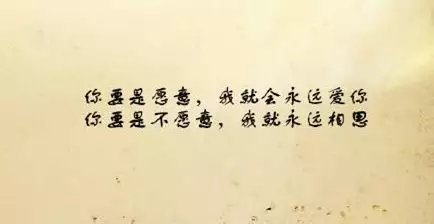 你要是愿意，我就会永远爱你
你要是不愿意，我就永远相思